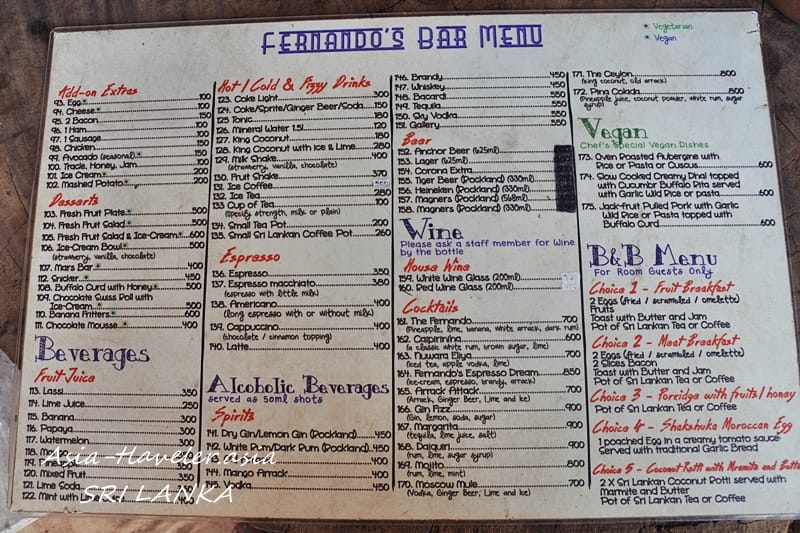 FERNANDO'S BAR MENU
Vegetarian
Vegan
Add-on Extras
93. Egg 100
94. Cheese 100
95. 2 Bacon 250
96. 1 Ham 100
97. 1 Sausage 100
98. Chicken 150
99. Avocado (seasonal) 150
100. Tracle, Honey, Jam 100
101. Ice Cream 200
102. Mashed Potato 200
Desserts
103. Fresh Fruit Plate 500
104. Fresh Fruit Salad 500
105. Fresh Fruit Salad & Ice-Cream 600
106. Ice-Cream Bowl 500
(strawberry, vanilla, chocolate)
107. Mars Bar 400
112. Snicker 450
108. Buffalo Curd with Honey 500
109. Chocolate Swiss Roll with
Ice-Cream 500
110. Banana Fritters 600
111. Chocolate Mousse 400
Beverages
Fruit Juice
113. Lassi 350
114. Lime Juice 250
115. Banana 300
116. Papaya 300
117. Watermelon 300
118.
119.
120. Mixed Fruit 350
121. Lime Soda 350
122. Mint with
Hot / Cold & Fizzy Drinks
123. Coke Light 300
124. Coke/Sprite/Ginger Beer/Soda 150
125. Tonic 180
126. Mineral Water 1.5l 120
127. King Coconut 180
128. King Coconut with Ice & Lime 280
129. Milk Shake 400
(strawberry, vanilla, chocolate)
130. Fruit Shake 370
131. Ice Coffee
132. Ice Tea 280
133. Cup of Tea 100
(specify strength, milk or plain)
134. Small Tea Pot 200
135. Small Sri Lankan Coffee Pot 260
Espresso
136. Espresso 350
137. Espresso macchiato 380
(espresso with little milk)
138. Americano 400
(long espresso with or without milk)
139. Cappuccino 400
(chocolate / cinnamon topping)
140. Latte 400
Alcoholic Beverages
served as 50ml shots
Spirits
141. Dry Gin/Lemon Gin (Rockland) 450
142. White Rum/Dark Rum (Rockland) 450
144. Mango Arrack 450
Vodka 450
146. Brandy 450
147. Whiskey 450
148. Bacardi 550
149. Tequila 550
150. Sky Vodka 550
151. Gallery 550
Beer
152. Anchor Beer (625ml)
153. Lager (625ml)
154. Corona Extra
155. Tiger Beer (Rockland) (330ml)
156. Heineken (Rockland) (330ml)
157. Magners (Rockland) (568ml)
158. Magners (Rockland) (330ml)
Wine
Please ask a staff member for Wine
by the bottle
House Wine
159. White Wine Glass (200ml)
160. Red Wine Glass (200ml)
Cocktails
161. The Fernando 700
(Pineapple, lime, banana, white arrack, dark rum)
162. Caipirinina 600
(a classic white rum, brown sugar, lime)
163. Nuwara Eliya 700
(iced tea, apple vodka, lime)
164. Fernando's Espresso Dream 850
(ice-cream, espresso, brandy, arrack)
165. Arrack Attack 700
(Arrack, Ginger Beer, Lime and Ice)
166. Gin Fizz 900
(Gin, lemon, soda, sugar)
167. Margarita 900
(tequila, lime juice, salt)
168. Daiquiri 900
(rum, lime, sugar syrup)
169. Mojito 800
(rum, lime, mint)
170. Moscow Mule 700
(Vodka, Ginger Beer, Lime and Ice)
171. The Ceylon 800
(king coconut, old arrack)
172. Pina Colada 800
(Pineapple juice, coconut powder, white rum, sugar
syrup)
Vegan
Chef's Special Vegan Dishes
173. Oven Roasted Aubergine with
Rice or Pasta or Cuscus 600
174. Slow Cooked Creamy Dhal topped
with Cucumbr Buffalo Rita served
with Garlic Wild Rice or pasta 600
175. Jack-fruit Pulled Pork with Garlic
Wild Rice or Pasta topped with
Buffalo Curd 600
B&B Menu
For Room Guests Only
Choice 1 - Fruit Breakfast
2 Eggs (fried / scrambled / omelette)
Fruits
Toast with Butter and Jam
Pot of Sri Lankan Tea or Coffee
Choice 2 - Meat Breakfast
2 Eggs (fried / scrambled / omelette)
2 Slices Bacon
Toast with Butter and Jam
Pot of Sri Lankan Tea or Coffee
Choice 3 - Porridge with fruits / honey
Pot of Sri Lankan Tea or Coffee
Choice 4 - Shakshuka Moroccan Egg
1 poached Egg in a creamy tomato sauce
Served with traditional Garlic Bread
Choice 5 - Coconut Rotti with Mremite and Butter
2 X Sri Lankan Coconut Rotti served with
Marmite and Butter
Pot of Sri Lankan Tea or Coffee
Asia-Haveler.asia
SRI LANKA